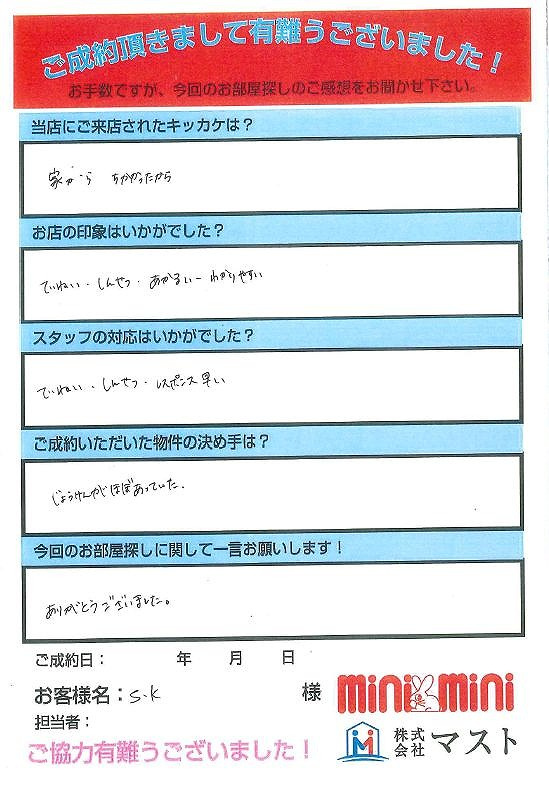 ご成約頂きまして有難うございました！
お手数ですが、今回のお部屋探しのご感想をお聞かせ下さい。
当店にご来店されたキッカケは？
家から ちかかったから
お店の印象はいかがでした？
ていねい・しんせつ・あかるい－わかりやすい
スタッフの対応はいかがでした？
ていねい・しんせつ・レスポンス早い
ご成約いただいた物件の決め手は？
じょうけんがほぼあっていた.
今回のお部屋探しに関して一言お願いします！
ありがとうございました。
ご成約日： 年 月 日
お客様名：S.K 様
mini mini
担当者：
株式会社マスト
ご協力有難うございました！